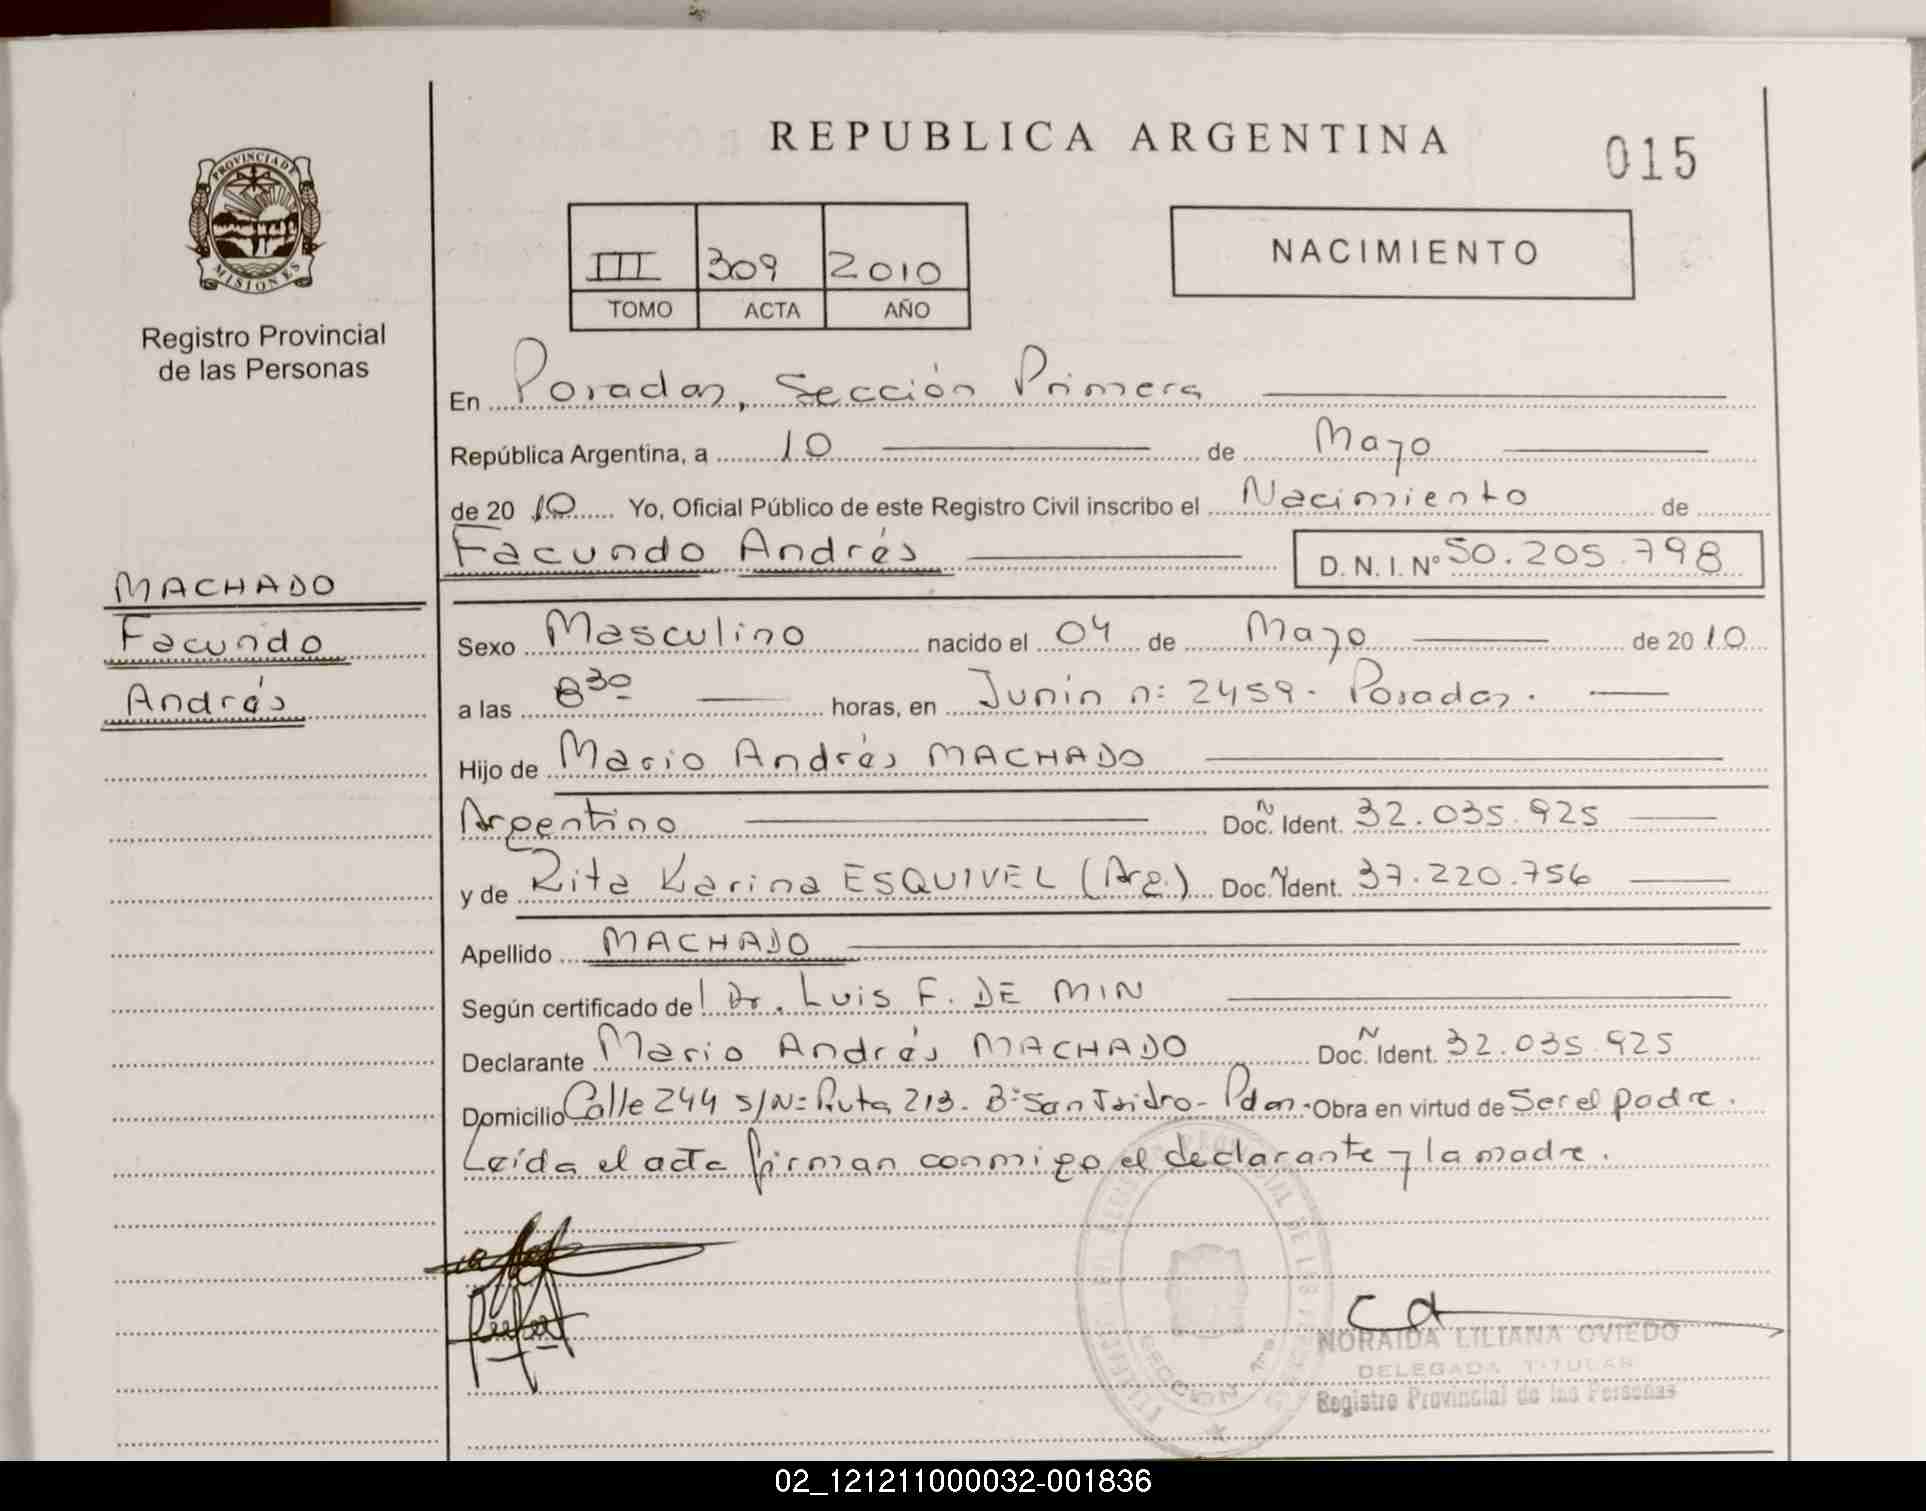 REPUBLICA ARGENTINA
015
PROVINCIA DE
MISIONES
Registro Provincial
de las Personas
III 309 2010
TOMO ACTA AÑO
NACIMIENTO
En Posadas, Sección Primera
República Argentina, a 10 de Mayo
de 2010 Yo, Oficial Público de este Registro Civil inscribo el Nacimiento de
Facundo Andrés D. N. I. Nº 50.205.798
MACHADO
Facundo
Andrés
Sexo Masculino nacido el 04 de Mayo de 2010
a las 8 30 horas, en Junín n: 2459. Posadas.
Hijo de Mario Andrés MACHADO
Argentino Doc. Ñ Ident. 32.035.925
y de Rita Karina ESQUIVEL (Arg.) Doc. Ident. 37.220.756
Apellido MACHADO
Según certificado del Dr. Luis F. DE MIN
Declarante Mario Andrés MACHADO Doc. Ñ Ident. 32.035.925
Domicilio Calle 244 S/N= Ruta 213. B= San Isidro- Pdas. Obra en virtud de Ser el padre.
Leída el acta firman conmigo el declarante y la madre.
NORAIDA LILIANA OVIEDO
DELEGADA TITULAR
Registro Provincial de las Personas
SECCION 1ra
02_121211000032-001836